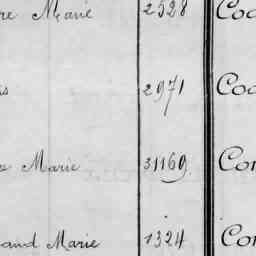 re Marie 2528 Coc
is 2971 Coc
Marie 31169. Cor
and Marie 1324 Cor